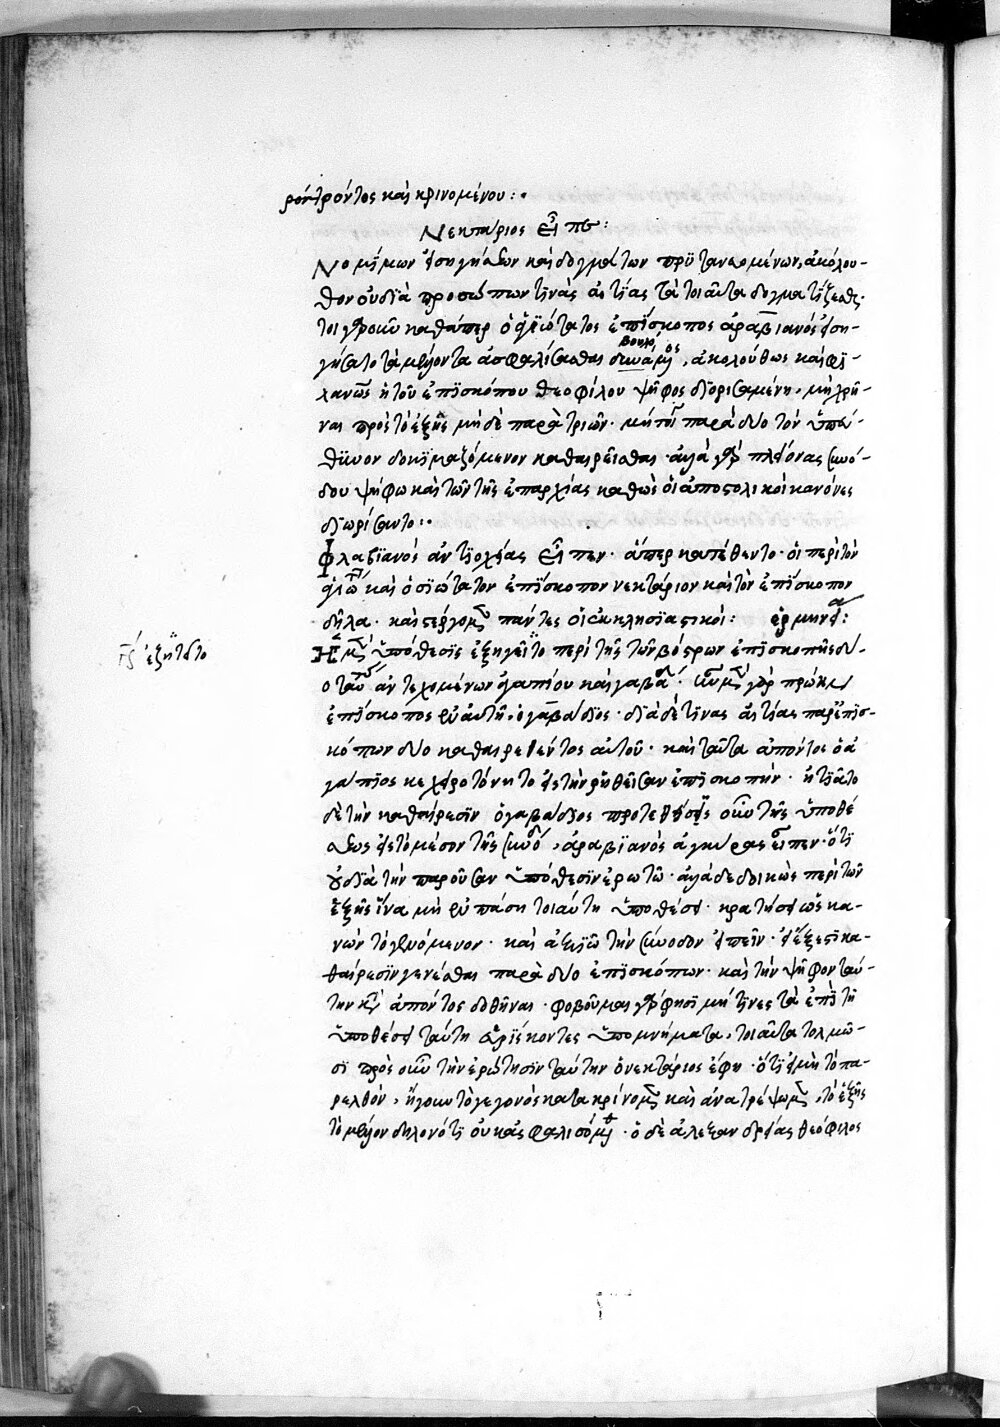 ρόντος καὶ κρινομένου:
Νεκτάριος εἶπε:
Νομίμων εἰσηγήσεων καὶ δογμάτων προϋτανευομένων, ἀκόλου-
θον οὐ διὰ προσώπων τινὰς αἰτίας τὰ τοιαῦτα δογματίζεσθαι·
τοιγαροῦν καθάπερ ὁ ἁγιώτατος ἐπίσκοπος ἀραβιανὸς εἰση-
γήσατο τὰ μέλλοντα ἀσφαλίσασθαι βουλό, ἀκολούθως καὶ φι-
λανῶς ἡ τοῦ ἐπισκόπου θεοφίλου ψῆφος διορισαμένη. μὴ χρῆ-
ναι πρὸς τὸ ἑξῆς μηδὲ παρὰ τριῶν· μήτοι παρὰ δύο τὸν ὑπεύ-
θυνον δοκιμαζόμενον καθαιρεῖσθαι· ἀλλὰ γὰρ πλείονος συνό-
δου ψήφω καὶ τῶν τῆς ἐπαρχίας καθὼς οἱ ἀποστολικοὶ κανόνες
διωρίσαντο:
Φλαβιανὸς ἀντιοχείας εἶπεν· ἅπερ κατέθεντο· οἱ περὶ τὸν
καὶ ὁσιώτατον ἐπίσκοπον νεκτάριον καὶ τὸν ἐπίσκοπον
δῆλα· καὶ στέργομεν πάντες οἱ ἐκκλησιαστικοί: ἑρμηνεία:
Ἡ μὲν ὑπόθεσις ἐξηγεῖτο περὶ τῆς τῶν βόστρων ἐπισκοπῆς δύ-
ο ταύτης ἀντεχομένων ἀγαπίου καὶ γαβαδίου· ἦν μὲν γὰρ πρώην
ἐπίσκοπος ἐν αὐτῇ, ὁ γαβάδιος· διὰ δέ τινας αἰτίας παρ' ἐπισ-
κόπων δύο καθαιρεθέντος αὐτοῦ· καὶ ταῦτα ἀπόντος ὁ ἀ
γάπιος κεχειροτόνητο εἰς τὴν ῥηθεῖσαν ἐπισκοπήν· ἠτιᾶτο
δὲ τὴν καθαίρεσιν ὁ γαβάδιος προτεθείσης οὖν τῆς ὑποθέ
σεως εἰς τὸ μέσον τῆς συνόδου, ἀραβιανὸς ἀγκύρας εἶπεν· ὅτι
οὐ διὰ τὴν παροῦσαν ὑπόθεσιν ἐρωτῶ· ἀλλὰ δεδοικὼς περὶ τῶν
ἑξῆς ἵνα μὴ ἐν πάσῃ τοιαύτῃ ὑποθέσει· κρατήσῃ ὡς κα-
νὼν τὸ γενόμενον· καὶ ἀξιῶ τὴν σύνοδον εἰπεῖν· εἰ ἔξεστι κα-
θαίρεσιν γενέσθαι παρὰ δύο ἐπισκόπων· καὶ τὴν ψῆφον ταύ-
την καὶ ἀπόντος δοθῆναι· φοβοῦμαι γάρ φησι μή τινες τὰ ἐπὶ τῇ
ὑποθέσει ταύτῃ εὑρίσκοντες ὑπομνήματα, τοιαῦτα τολμῶ-
σι πρὸς οὖν τὴν ἐρώτησιν ταύτην ὁ νεκτάριος ἔφη· ὅτι εἰ μὴ τὸ πα-
ρελθόν, ἤγουν τὸ γεγονὸς κατακρίνομεν καὶ ἀνατρέψωμεν, τὸ ἑξῆς
τὸ μέλλον δηλονότι οὐκ ἀσφαλισόμεθα· ὁ δὲ ἀλεξανδρείας θεόφιλος